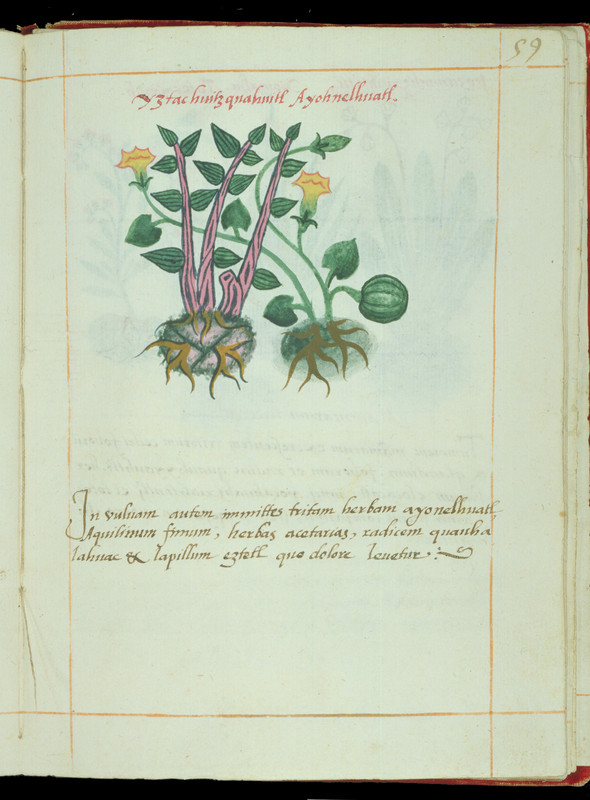 59
Yztac huitzquahuitl Ayohnelhuatl.
In vuluam autem immittes tritam herbam ayonelhuatl,
Aquilinum fimum, herbas acetarias, radicem quauhla
lahuac & lapillum eztetl quo dolore leuetur.